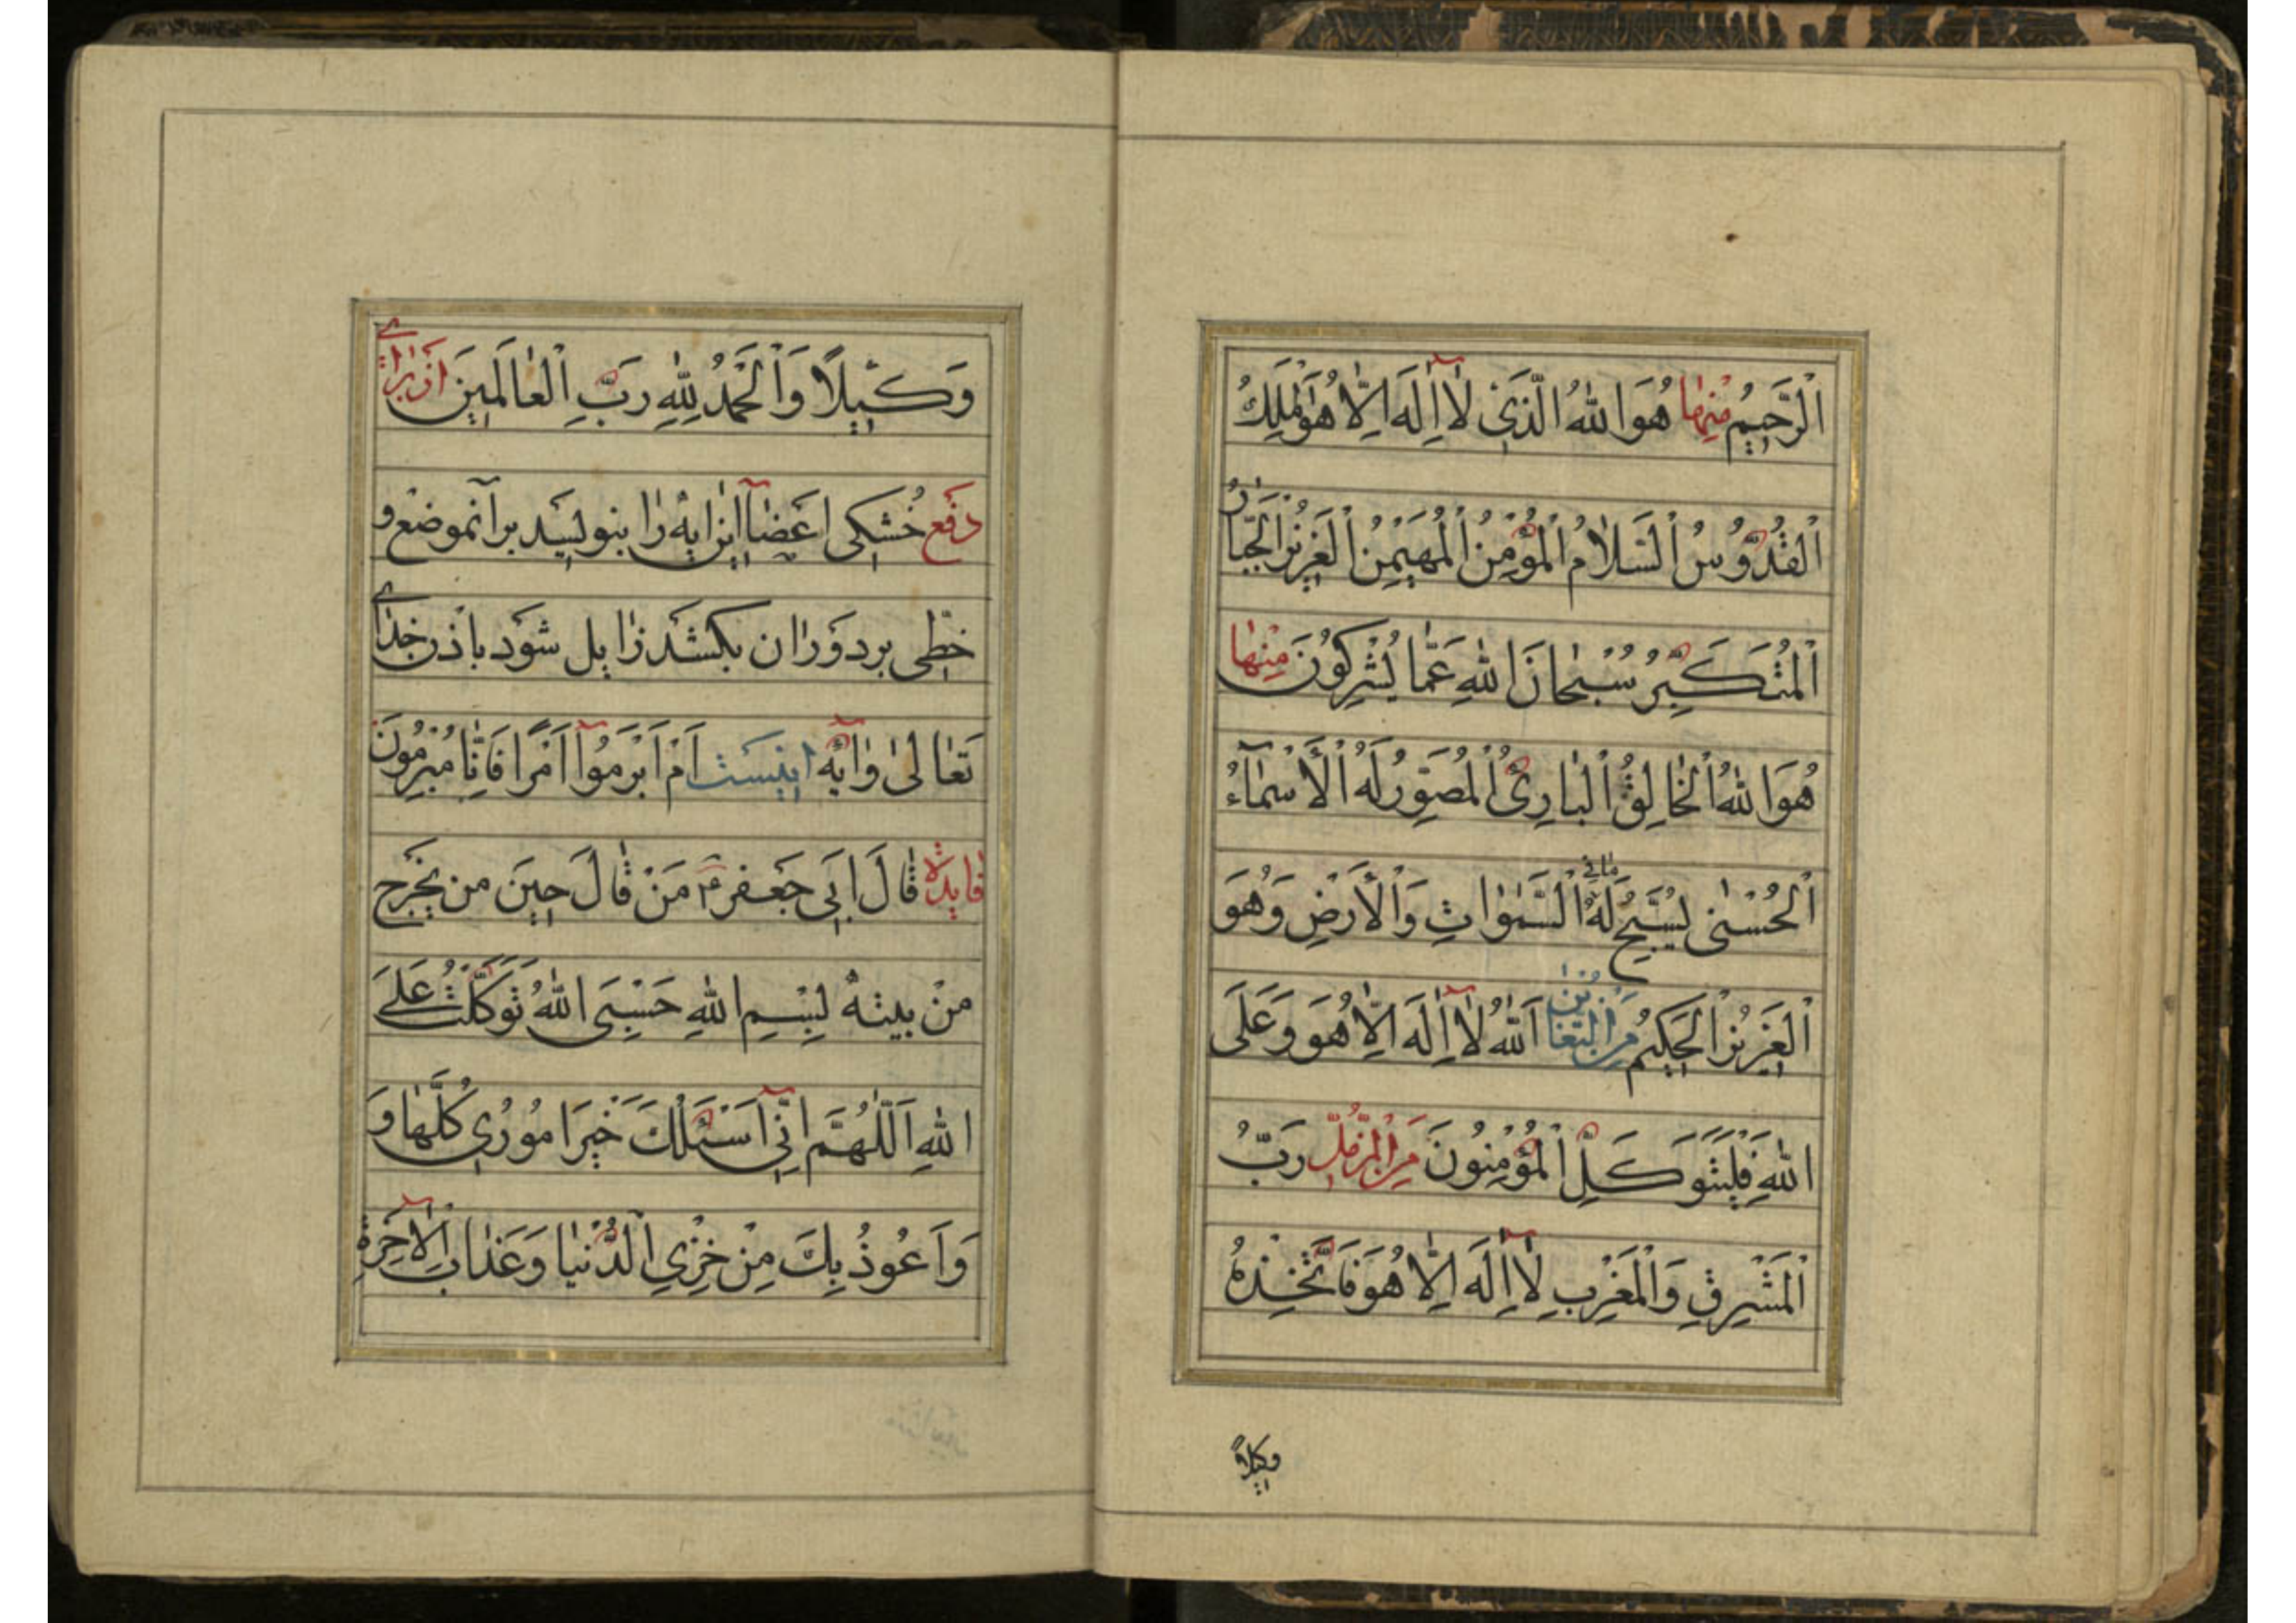 اَلرَّحيمُ مِنْهٰا هُوَ اللهُ الَّذي لٰا اِلٰهَ اِلّٰا هُوَ الْمَلِكُ
اَلْقُدُّوسُ اَلسَّلٰامُ اَلْمُؤْمِنُ اَلْمُهَيْمِنُ اَلْعَزيزُ اَلْجَبّٰارُ
اَلْمُتَكَبِّرُ سُبْحٰانَ اللهِ عَمّٰا يُشْرِكُونَ مِنْهٰا
هُوَ اللهُ اَلْخٰالِقُ اَلْبٰارِئُ اَلْمُصَوِّرُ لَهُ اَلْأَسْمٰآءُ
اَلْحُسْنىٰ يُسَبِّحُ لَهُ مٰافي اَلسَّمٰوٰاتِ وَالْأَرْضِ وَهُوَ
اَلْعَزيزُ اَلْحَكيمُ مِنَ التَّغٰابُنِ اَللهُ لٰا اِلٰهَ اِلّٰا هُوَ وَعَلَى
اللهِ فَلْيَتَوَكَّلِ اَلْمُؤْمِنُونَ مِنَ الْمُزَّمِّلِ رَبُّ
اَلْمَشْرِقِ وَالْمَغْرِبِ لٰا اِلٰهَ اِلّٰا هُوَ فَاتَّخِذْهُ
وكيلاً
وَكيلًا وَالْحَمْدُ لِلّٰهِ رَبِّ الْعٰالَمينَ از براي
دفع خُشكى اعضٰا اين ايه را بنويسيد بر آنموضع و
خطّى بر دور ان بكشد زايل شود باذن خداي
تَعٰالىٰ وايه اينست اَمْ اَبْرَمُوا اَمْرًا فَاِنّٰا مُبْرِمُونَ
فايدة قٰالَ ابى جَعفر ع مَنْ قٰالَ حينَ من يخرج
منْ بيته بِسْمِ اللهِ حَسْبِىَ اللهُ تَوَكَّلْتُ عَلَى
اللهِ اَللّٰهُمَّ اِنّي اَسْئَلُكَ خَيْرَ اُمُوري كُلِّهٰا وَ
وَاَعُوذُ بِكَ مِنْ خِزْيِ الدُّنْيٰا وَعَذٰابِ الْاٰخِرَةِ